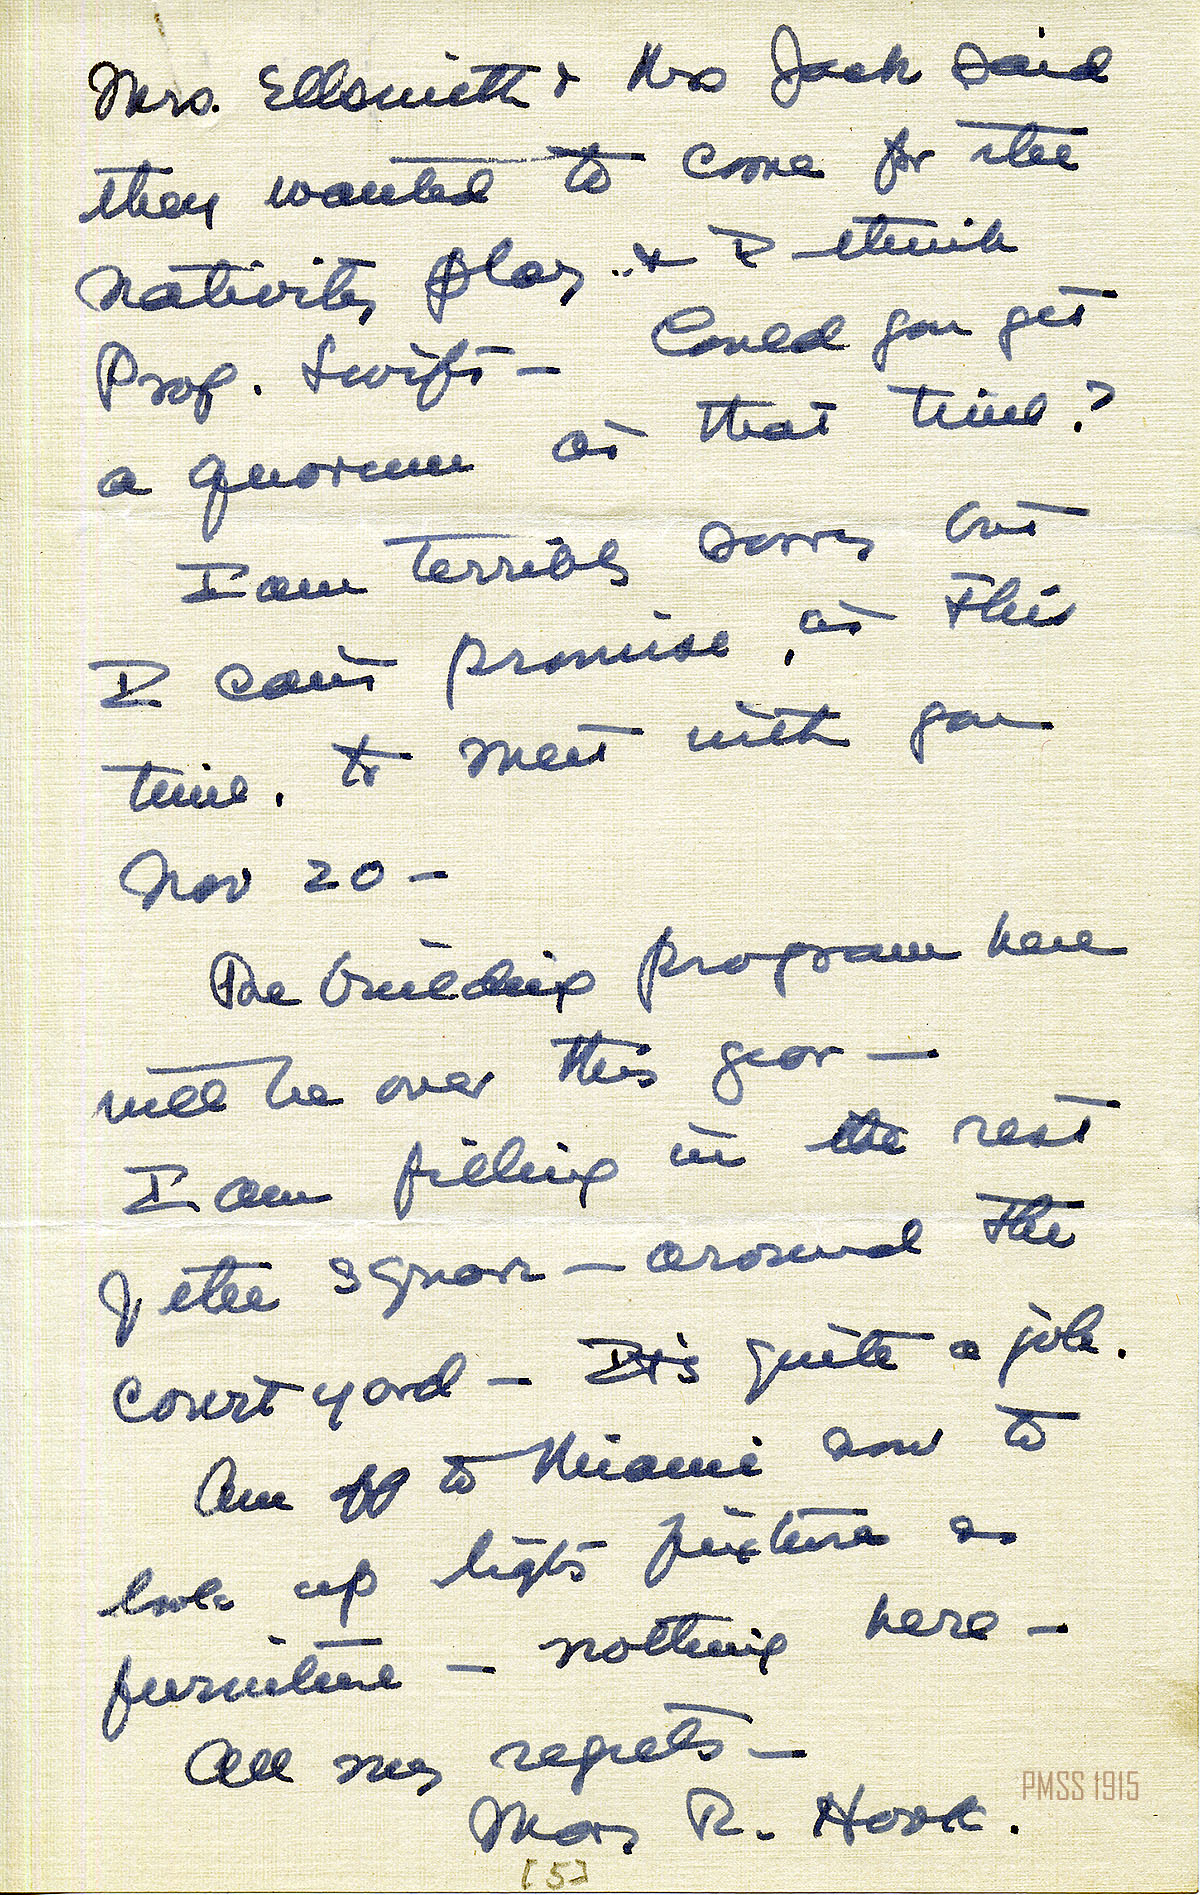 Mrs. Ellsmith & Mrs Jack said
they wanted to come for the
nativity play .. & I think
Prof. Swift — Could you get
a quorum at that time?
I am terribly sorry but
I can't promise, at this
time. to meet with you
Nov 20 —
The building program here
will be over this year —
I am filling in the rest
of the square — around the
court yard — It's quite a job.
Am off to Miami now to
look up light fixture &
furniture — nothing here —
All my regrets —
Mary R. Hook.
PMSS 1915
[5]